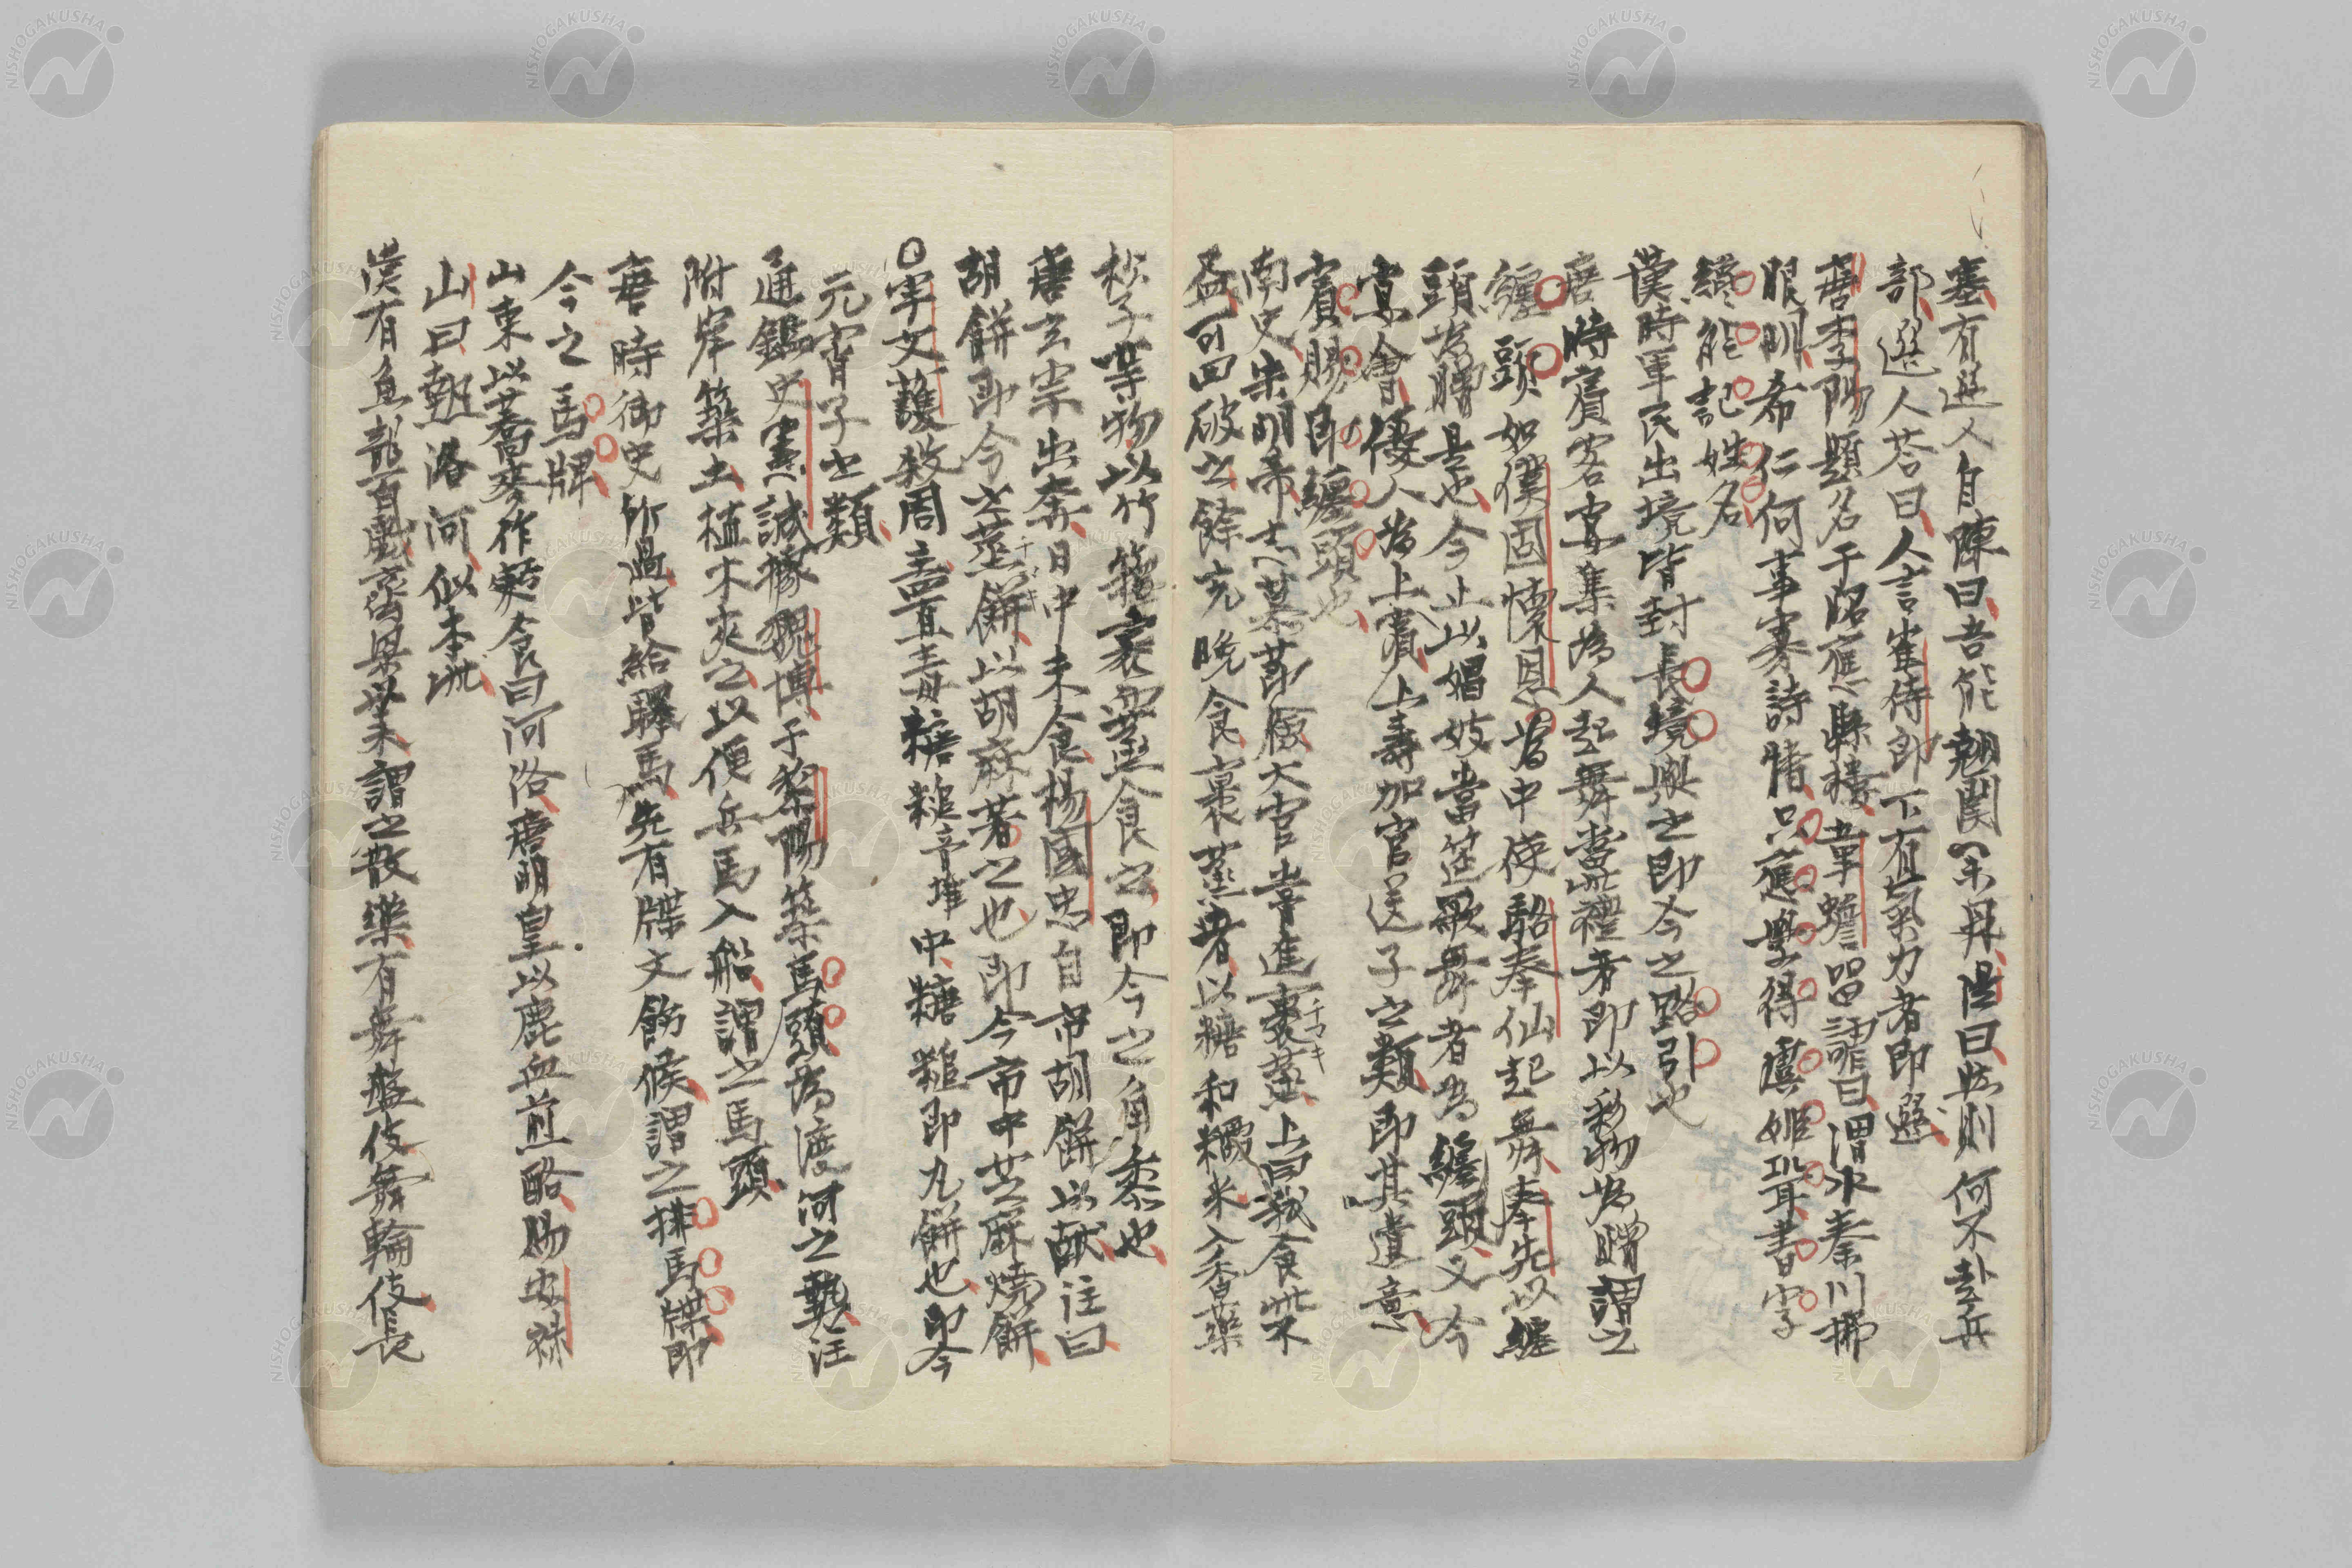 塞有選人自陳曰吾能翹関一米丹陽曰若則何不赴兵
部選人答曰人言崔侍郎下有氣力者即選
唐李陽題名于昭應縣樓韋蟾嘗謔曰渭水秦川拂
眼明希仁何事寡詩情只應學得虞姬聟書字
纔能記姓名
漢時軍民出境皆封長繞與之即今之路引也
唐時賓客宴集為人起舞當此禮者即以彩物為贈謂之
纏頭如僕固懷恩為中使駱奉仙起舞奉先以纏
頭為贈是也今止以娼妓當筵歌舞者為纏頭又今
宴會優人為上賓上壽加官送子之類即其遺意
賓賜即纏頭也
南史宋明帝志慕節儉大官嘗進裹蒸上曰我食此不
盡可四破之餘充晚食裹蒸者以糖和糯米入香藥
松子等物以竹籜裹而蒸食之即今之角黍也
唐玄宗出奔日中未食楊國忠自市胡餅以献注曰
胡餅即今之蒸餅以胡麻著之也即今市中芝麻燒餅
宇文護殺周主毓置毒糖䭔音堆中糖䭔即丸餅也即今
元宵子之類
通鑑史憲誠據魏博于黎陽築馬頭為渡河之勢注
附岸築土植木夾之以便兵馬入船謂之馬頭
唐時御史所過皆給驛馬先有牒文飭候謂之排馬牒即
今之馬牌
山東以蕎麥作食曰河洛唐明皇以鹿血煎酪賜安祿
山曰熱洛河似本此
漢有魚龍百戲齊梁以来謂之散樂有舞盤伎舞輪伎長